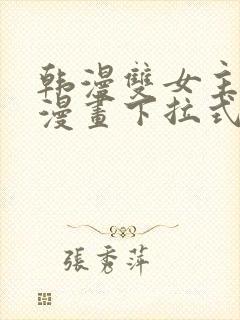 韩漫雙女主
漫畫下拉式
張秀萍